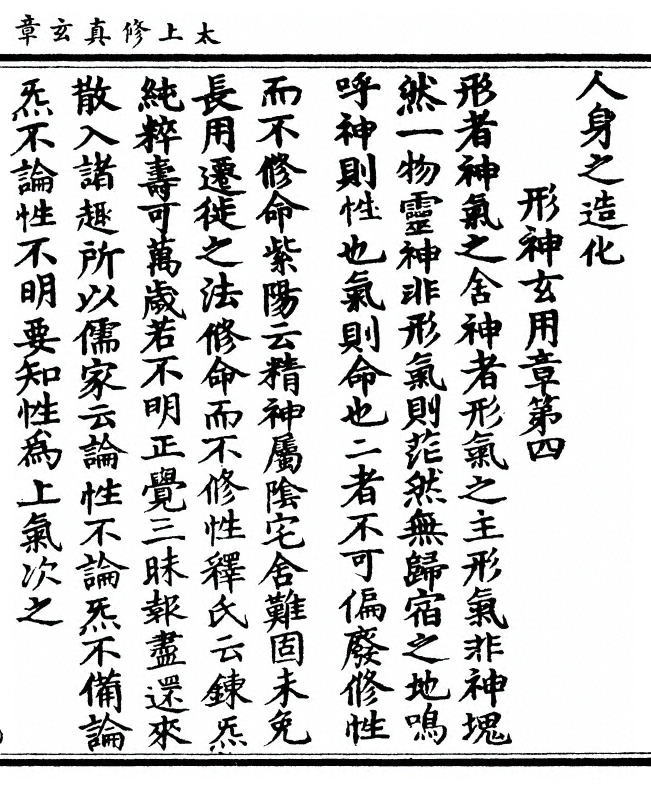 太上修真玄章
人身之造化
形神玄用章第四
形者神氣之舍神者形氣之主形氣非神塊
然一物靈神非形氣則茫然無歸宿之地嗚
呼神則性也氣則命也二者不可偏廢修性
而不修命紫陽云精神屬陰宅舍難固未免
長用遷徙之法修命而不修性釋氏云鍊炁
純粹壽可萬歲若不明正覺三昧報盡還來
散入諸趣所以儒家云論性不論炁不備論
炁不論性不明要知性為上氣次之